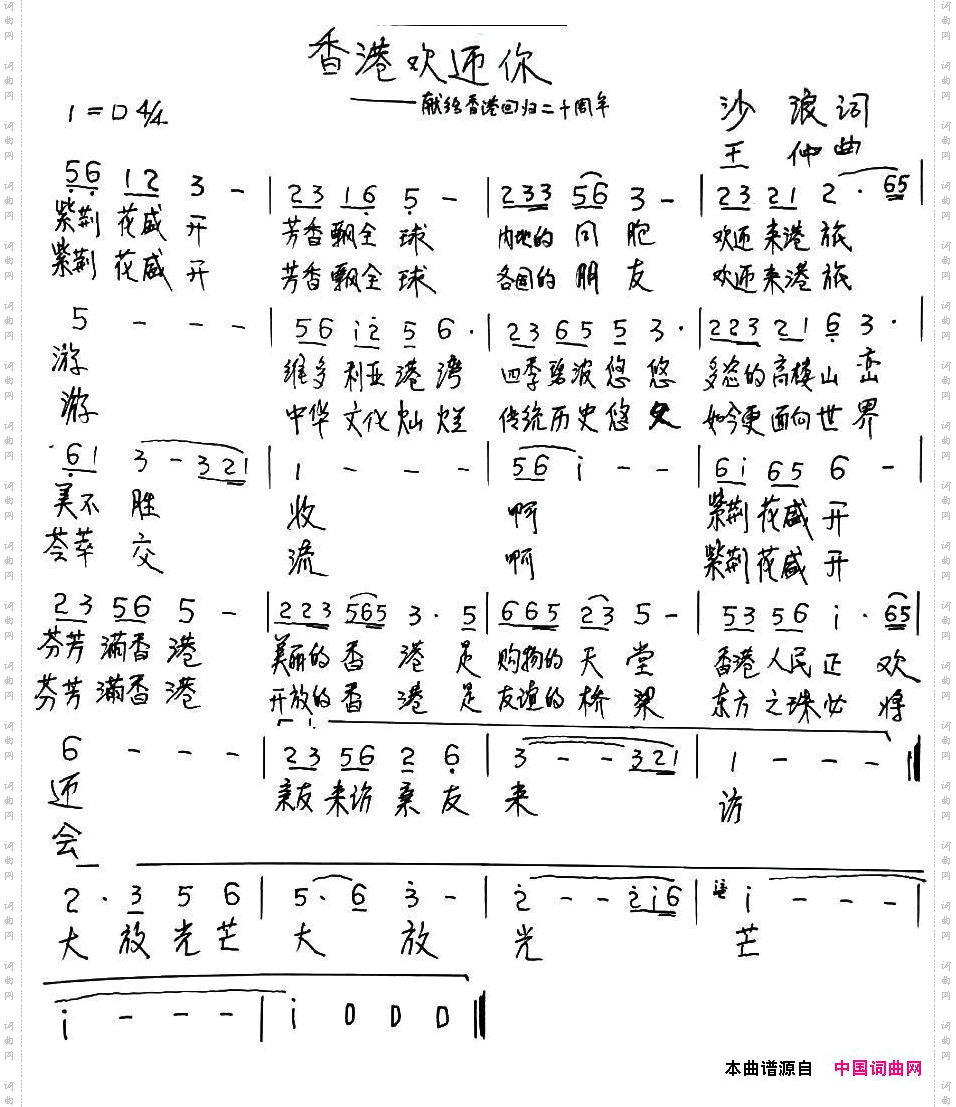 香港欢迊你
——献给香港回归二十周年
1=D 4/4
沙浪词
王仲曲
56 12 3 - | 23 16 5 - | 233 56 3 - | 23 21 2 · 65
紫荆花盛开 芳香飘全球 内地的同胞 欢迊来港旅
紫荆花盛开 芳香飘全球 各国的朋友 欢迊来港旅
5 - - - | 56 12 5 6 · | 23 65 5 3 · | 223 21 6 3 ·
游 维多利亚港湾 四季碧波悠悠 多姿的高楼山峦
游 中华文化灿烂 传统历史悠久 如今更面向世界
61 3 - 321 | 1 - - - | 56 i - - | 6i 65 6 -
美不胜 收 啊 紫荆花盛开
荟萃交 流 啊 紫荆花盛开
23 56 5 - | 223 565 3 · 5 | 665 23 5 - | 53 56 i · 65
芬芳满香港 美丽的香港是 购物的天堂 香港人民正欢
芬芳满香港 开放的香港是 友谊的桥梁 东方之珠必将
1.
6 - - - | 23 56 2 6 | 3 - - 321 | 1 - - -
迊 亲友来访亲友 来 访
会
2 · 3 5 6 | 5 · 6 3 - | 2 - - 2i6 | i - - -
大放光芒 大放 光 芒
i - - - | i 0 0 0
本曲谱源自 中国词曲网
词曲网